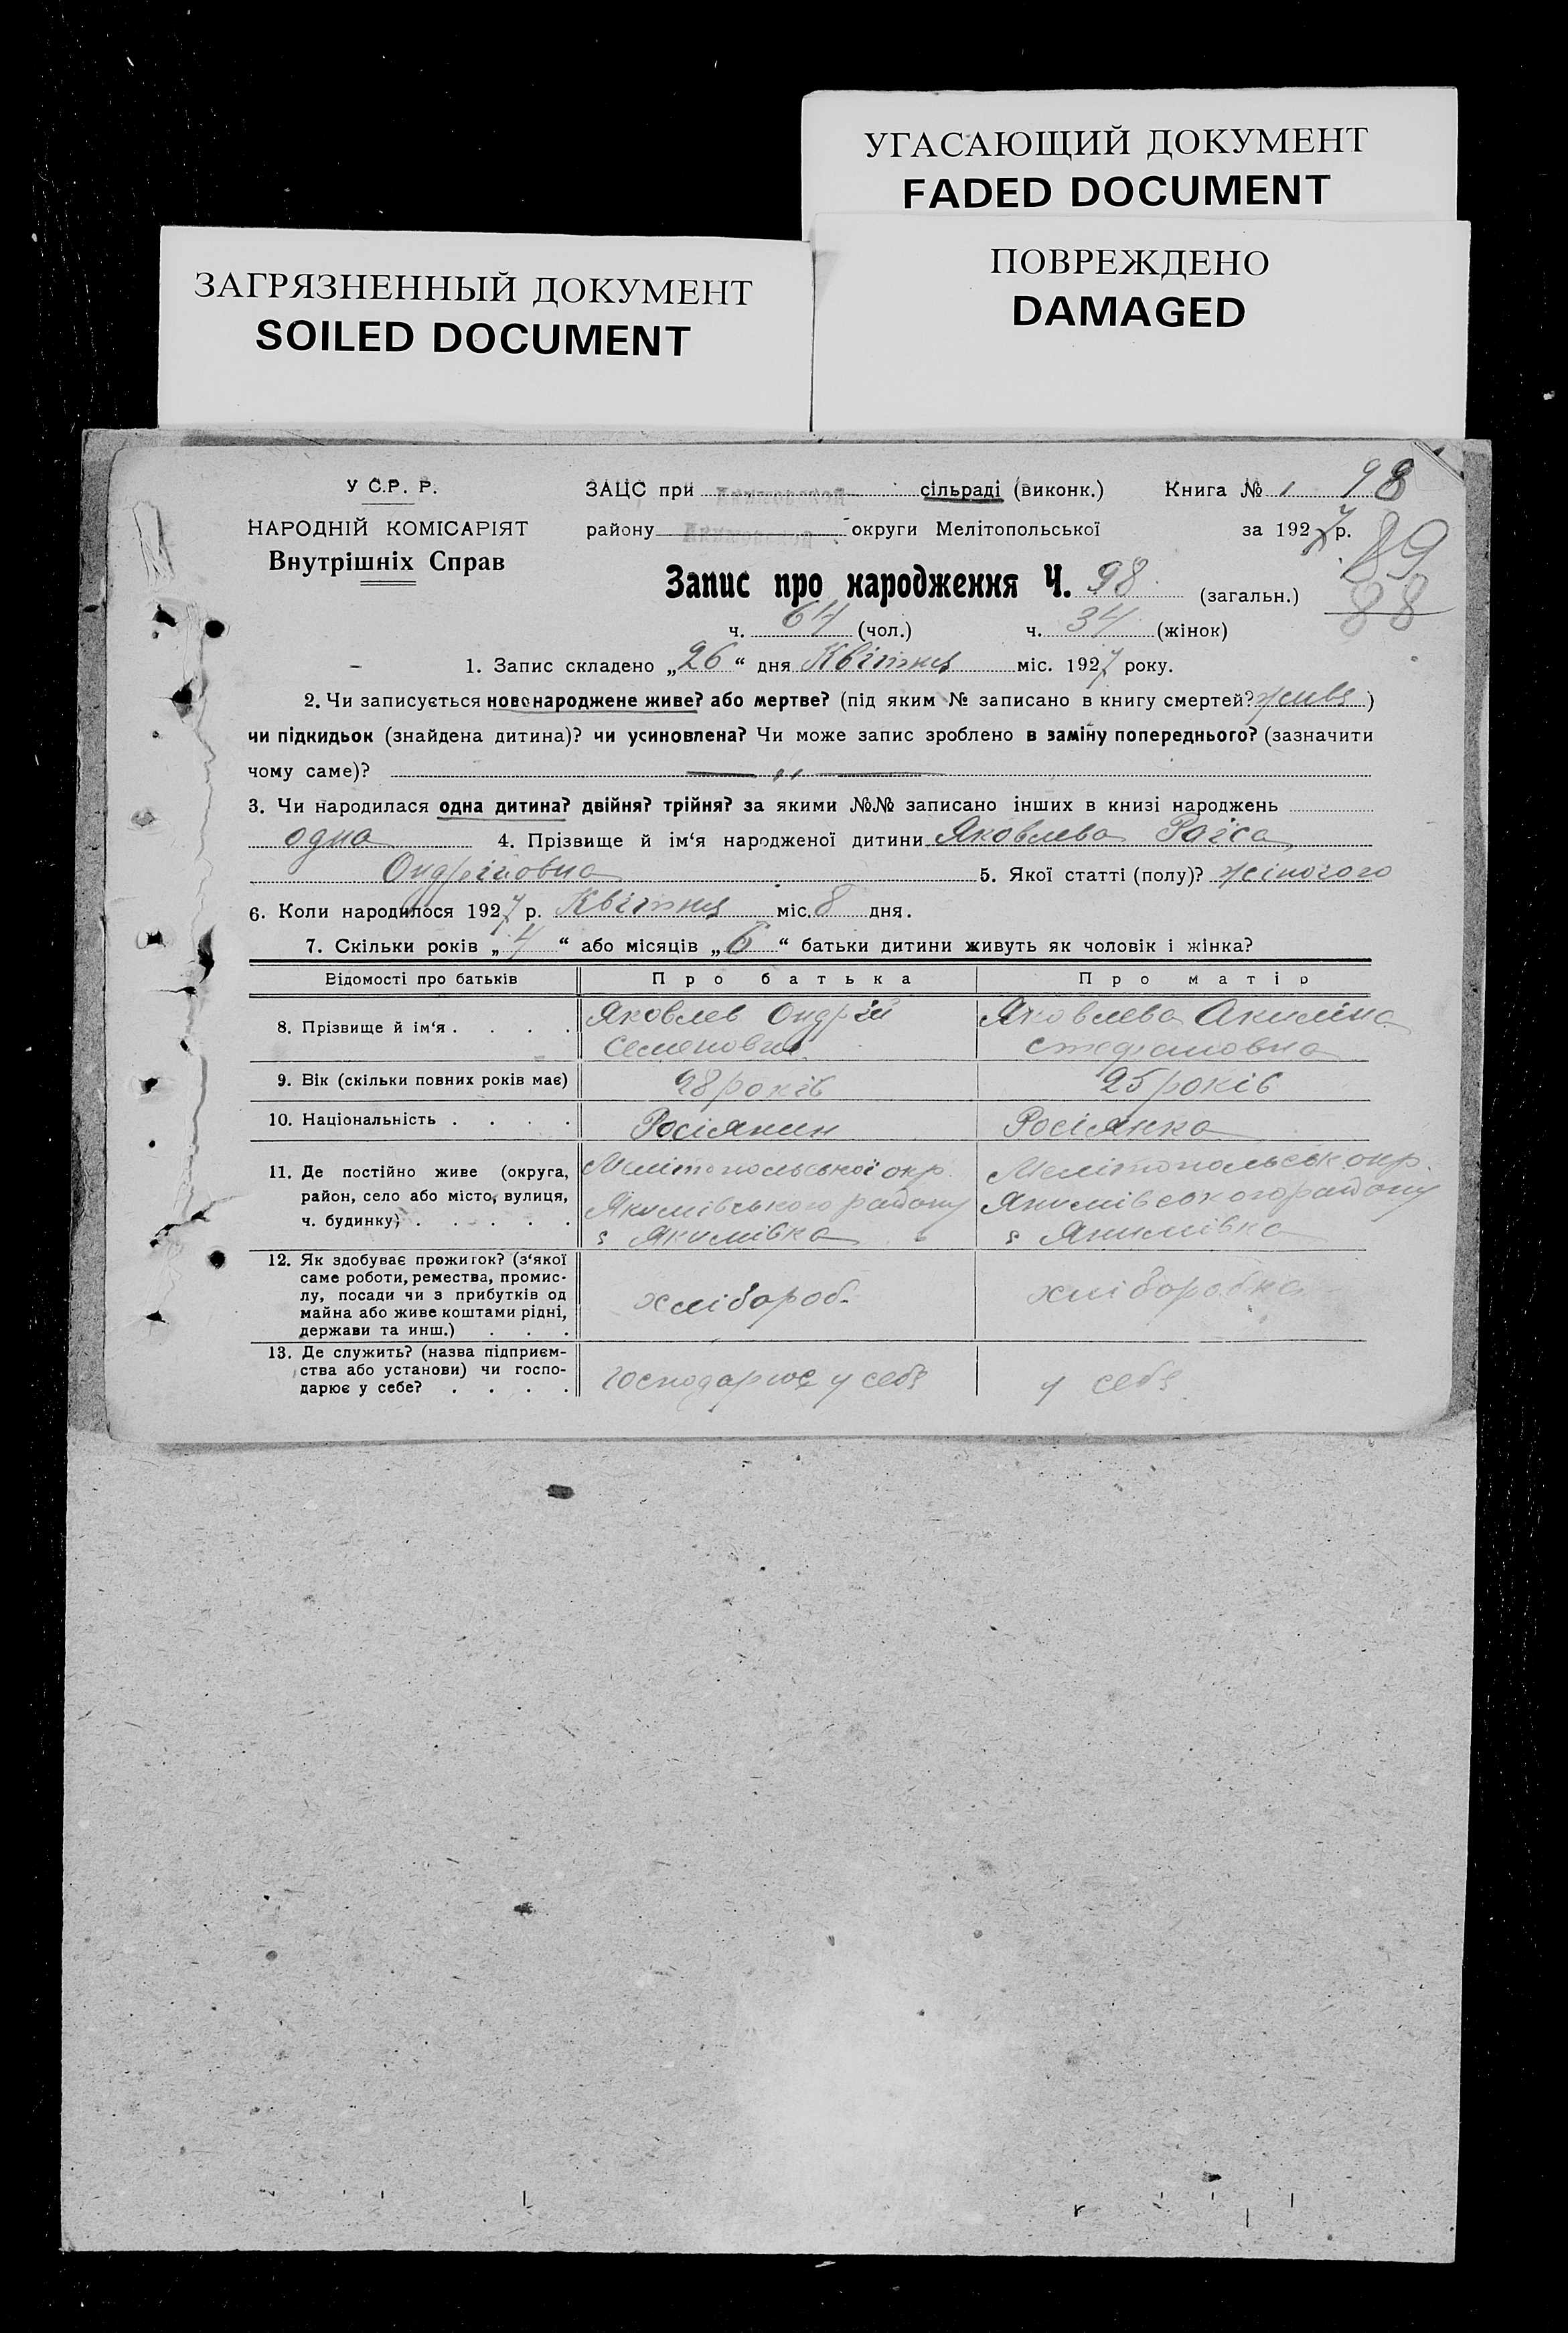 УГАСАЮЩИЙ ДОКУМЕНТ
FADED DOCUMENT
ЗАГРЯЗНЕННЫЙ ДОКУМЕНТ
SOILED DOCUMENT
ПОВРЕЖДЕНО
DAMAGED
У С.Р. Р.
НАРОДНІЙ КОМІСАРІЯТ
Внутрішніх Справ
ЗАЦС при Якимовской сільраді (виконк.) Книга № 1 98
району Якимовской округи Мелітопольської за 1927 р.
89
88
Запис про народження Ч. 98 (загальн.)
ч. 64 (чол.) ч. 34 (жінок)
1. Запис складено „26“ дня Квітня міс. 1927 року.
2. Чи записується новонароджене живе? або мертве? (під яким № записано в книгу смертей? живе)
чи підкидьок (знайдена дитина)? чи усиновлена? Чи може запис зроблено в заміну попереднього? (зазначити
чому саме)? — „ —
3. Чи народилася одна дитина? двійня? трійня? за якими №№ записано інших в книзі народжень
одна 4. Прізвище й ім‘я народженої дитини Яковлева Раіса
Ондріїовна 5. Якої статті (полу)? жіночого
6. Коли народилося 1927 р. Квітня міс. 8 дня.
7. Скільки років „4“ або місяців „6“ батьки дитини живуть як чоловік і жінка?
Відомості про батьків Про батька Про матір
8. Прізвище й ім‘я . . . . Яковлев Ондрій Яковлева Акиліна
Семенович Стефановна
9. Вік (скільки повних років має) 28 років 25 років
10. Національність . . . . Росіянин Росіянка
11. Де постійно живе (округа, Мелітопольської окр. Мелітопольськ окр.
район, село або місто, вулиця, Якимівського району Якимівського району
ч. будинку) . . . . . с Якимівка с Якимівка
12. Як здобуває прожиток? (з‘якої
саме роботи, ремества, промис-
лу, посади чи з прибутків од хлібороб. хліборобка
майна або живе коштами рідні,
держави та инш.) . . .
13. Де служить? (назва підприєм-
ства або установи) чи госпо- господарює у себе у себе
дарює у себе? . . . .